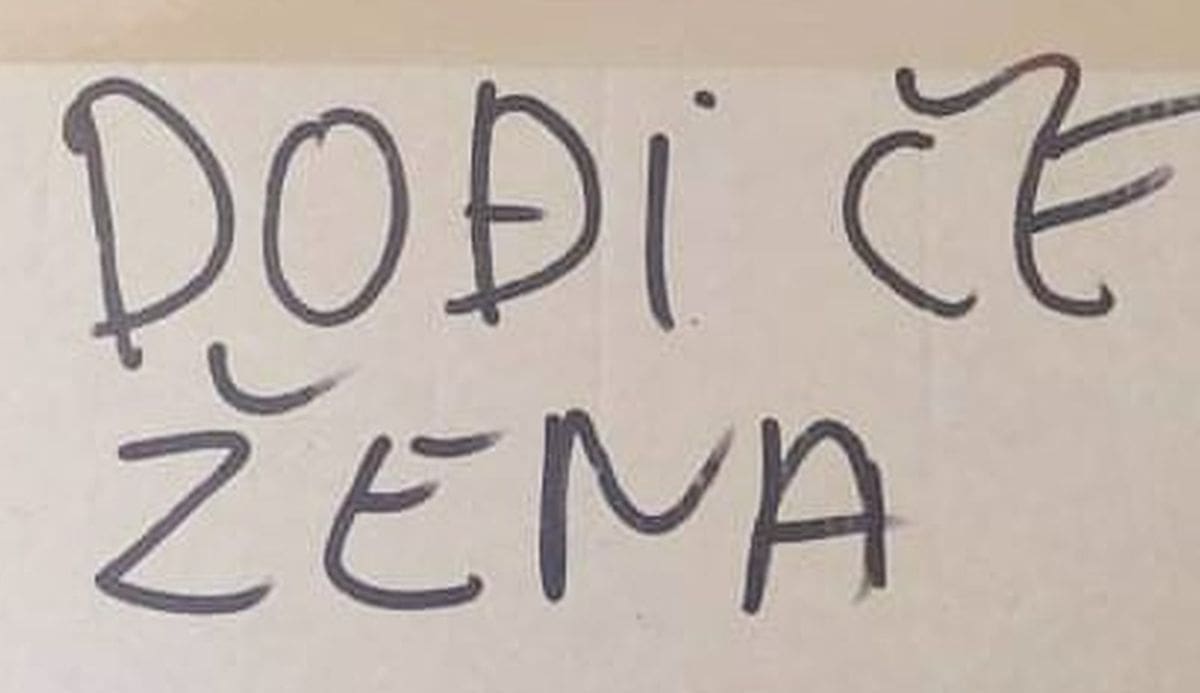 DOĐi ČE
ŽENA